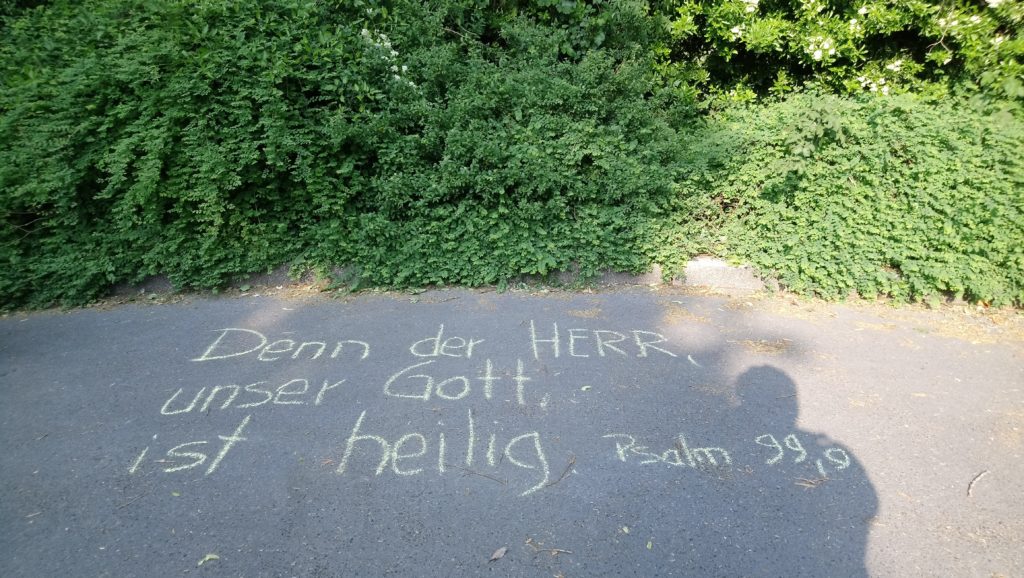 Denn der HERR,
unser Gott,
ist heilig. Psalm 99,9